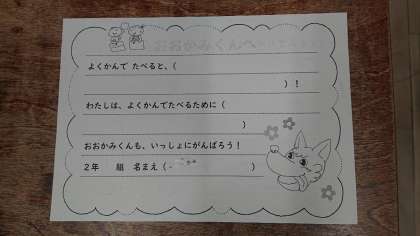 おおかみくんへ
よくかんで たべると、(
)！
わたしは、よくかんでたべるために (
)
おおかみくんも、いっしょにがんばろう！
2年　組　名まえ (　　)